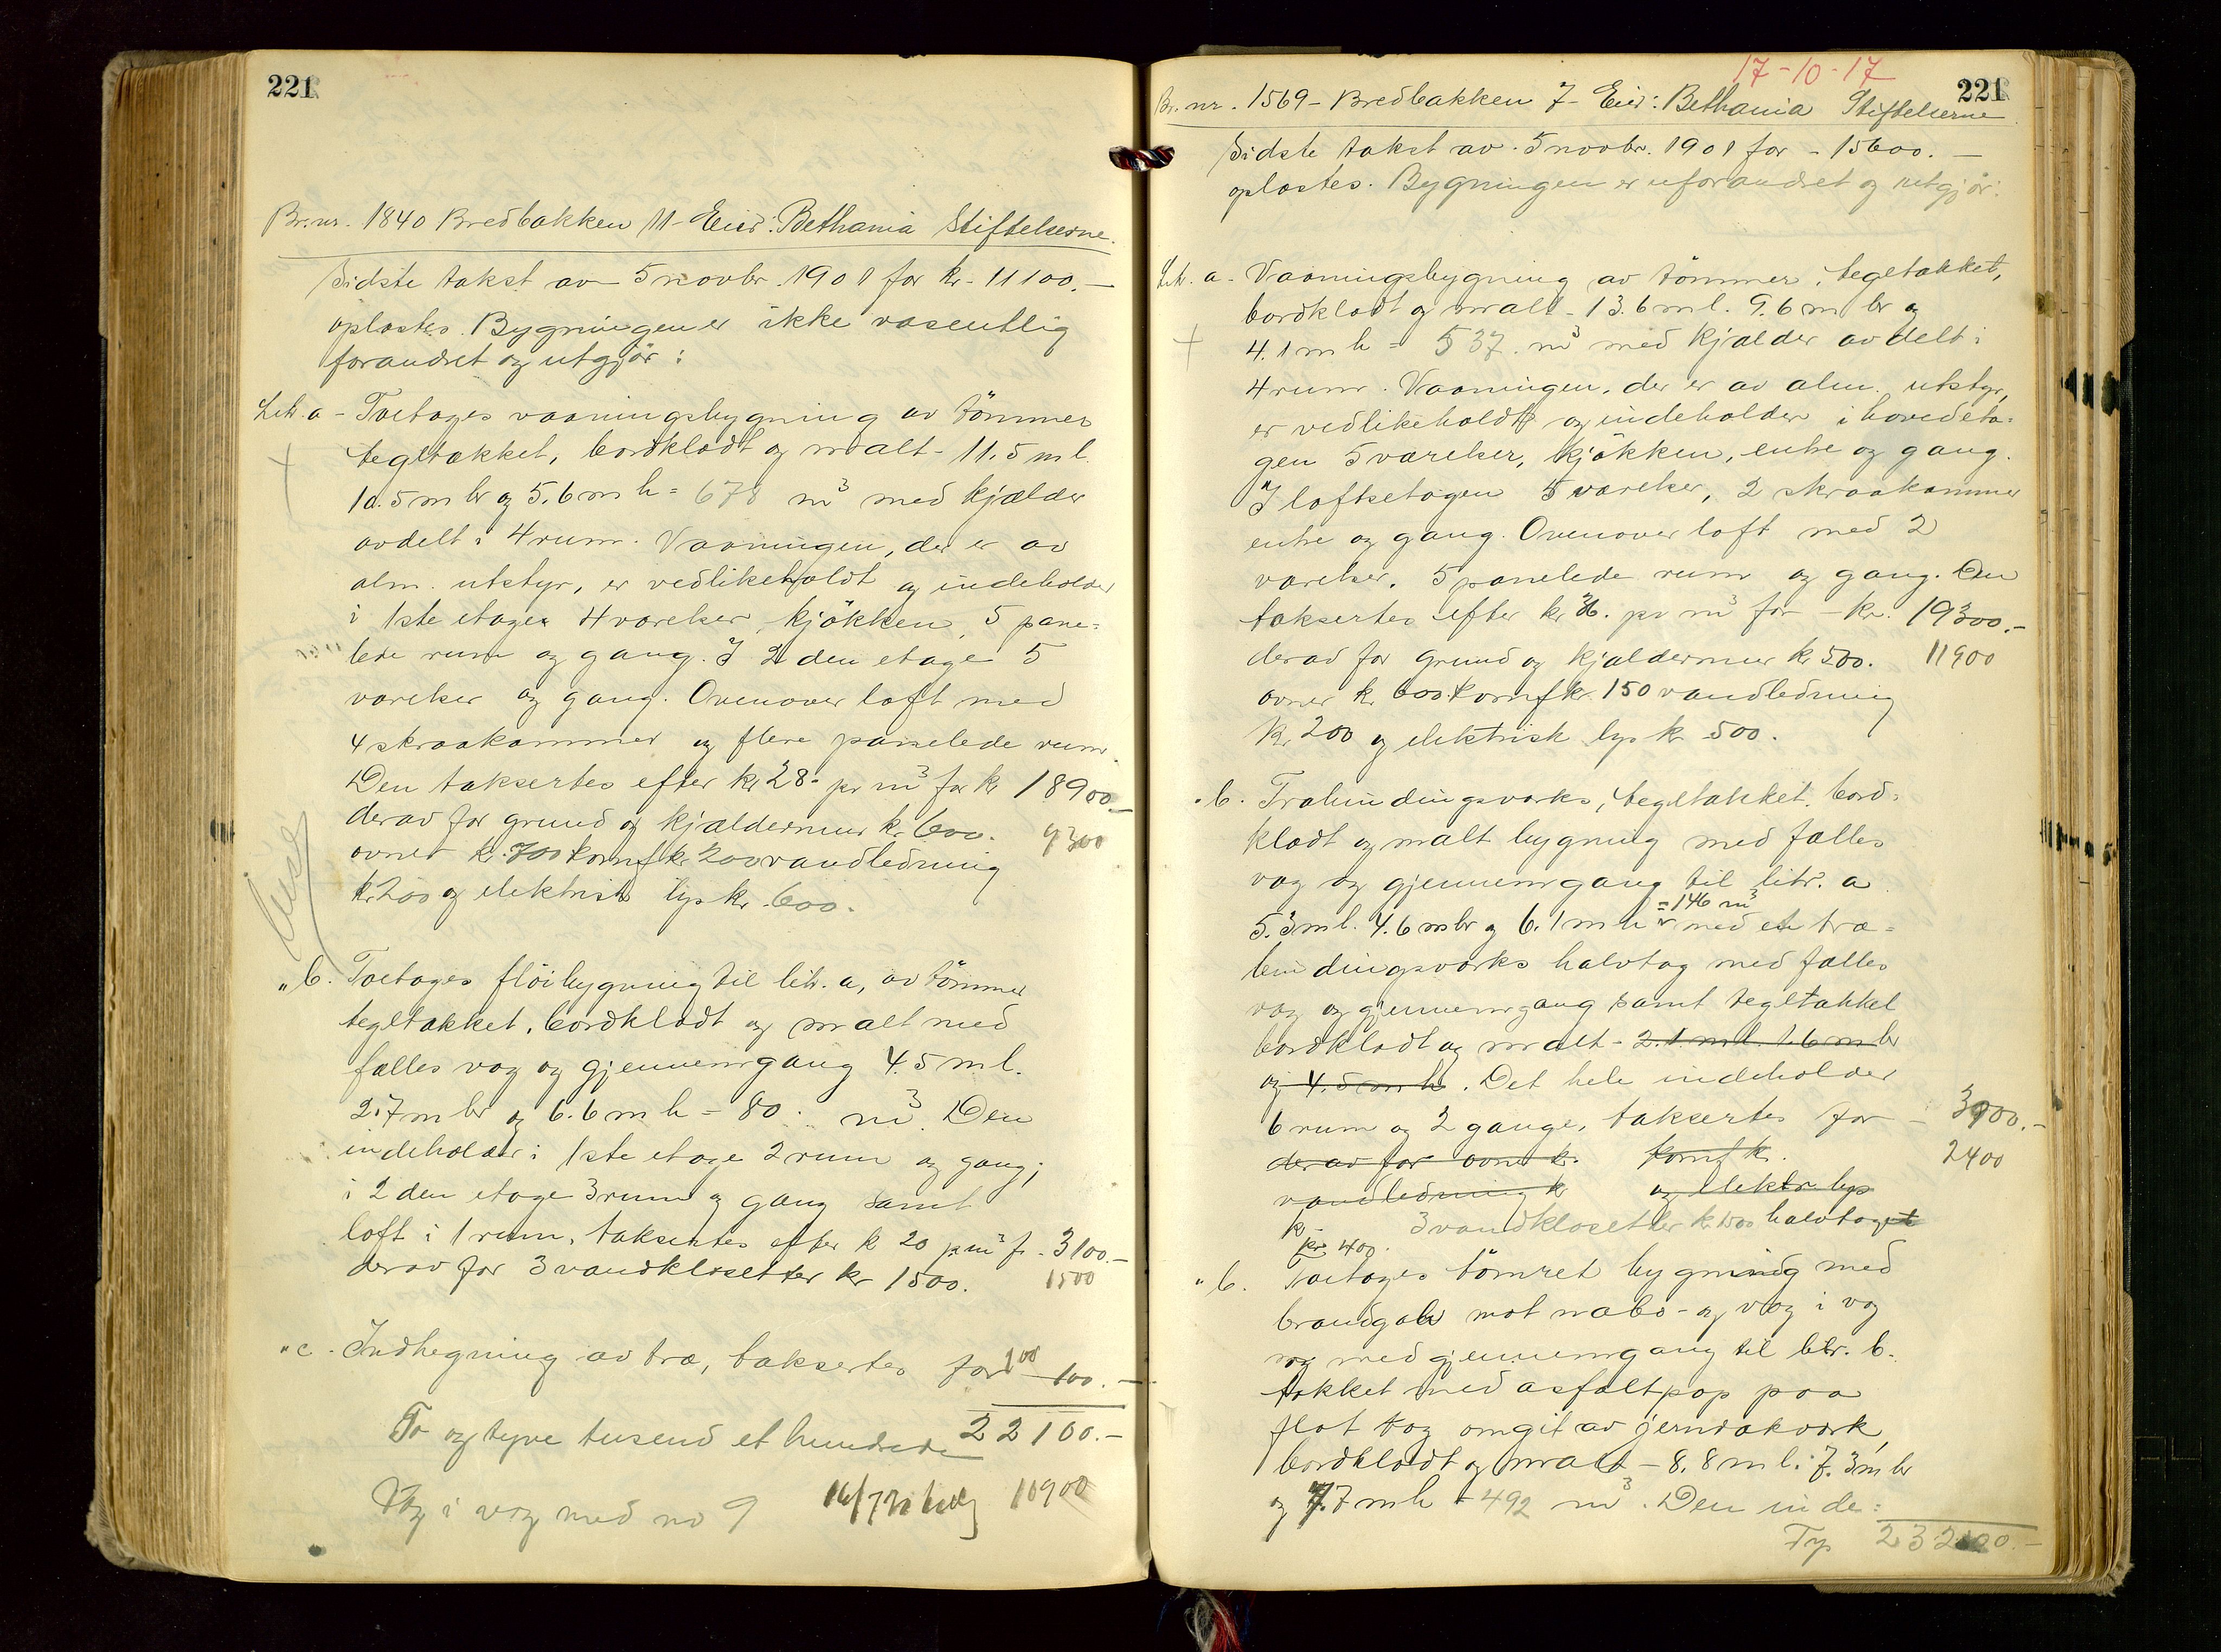 221
Br. nr. 1840 Bredbakken 11 - Eier: Bethania Stiftelserne.
Sidste takst av 5 novbr. 1901 for kr. 11100.—
oplæstes. Bygningen er ikke væsentlig
forandret og utgjør:
Litr. a - Toetages vaaningsbygning av tömmer
tegltækket, bordklædt og malt - 11.5 m l.
10.5 m br og 5.6 m h = 678 m³ med kjælder
avdelt i 4 rum. Vaaningen, der er av
alm. utstyr, er vedlikeholdt og indeholder
i 1ste etage 4 værelser, kjökken, 5 pane-
lede rum og gang. I 2den etage 5
værelser og gang. Ovenover loft med
4 skraakammer og flere panelede rum.
Den taksertes efter kr 28.- pr m³ for kr 18900.—
derav for grund og kjældermur kr. 600. 9300
ovner kr. 700 komf kr 200 vandledning
kr. 200 og elektrisk lys kr. 600.
" b. Toetages flöibygning til litr. a, av tömmer
tegltækket, bordklædt og malt med
fælles væg og gjennemgang 4.5 m l.
2.7 m br og 6.6 m h = 80 m³. Den
indeholder i 1ste etage 2 rum og gang;
i 2den etage 3 rum og gang samt
loft i 1 rum, taksertes efter k 20 pr m³ f. - 3100.—
derav for 3 vandklosetter kr 1500. 1500
" c. Indhegning av træ, taksertes for 100 100.—
To og tyve tusend et hundrede 22100.—
Væg i væg med no 9 10900
17-10-17
221
Br. nr. 1569 - Bredbakken 7 - Eier: Bethania Stiftelserne
Sidste takst av 5 novbr. 1901 for - 15600.—
oplæstes. Bygningen er uforandret og utgjör:
Litr. a - Vaaningsbygning av tömmer, tegltækket,
bordklædt og malt - 13.6 m l. 9.6 m br og
4.1 m h = 537 m³ med kjælder avdelt i
4 rum. Vaaningen, der er av alm. utstyr,
er vedlikeholdt og indeholder i hovedeta-
gen 5 værelser, kjökken, entre og gang.
I loftsetagen 5 værelser, 2 skraakammer
entre og gang. Ovenover loft med 2
værelser, 5 panelede rum og gang. Den
taksertes efter kr 36. pr m³ for - kr. 19300.—
derav for grund og kjældermur kr 500. 11900
ovner kr 600 komf kr. 150 vandledning
kr 200 og elektrisk lys kr 500.
" b. Træbindingsværks, tegltækket, bord-
klædt og malt bygning med fælles
væg og gjennemgang til litr. a
= 146 m³
5.3 m l. 4.6 m br og 6.1 m h med et træ-
bindingsværks halvtag med fælles
væg og gjennemgang samt tegltækket
bordklædt og malt - 2.1 m l. 1.6 m br
og 4.5 m h. Det hele indeholder
6 rum og 2 gange, taksertes for - 3900.—
derav for ovne kr. komf kr. 2400
vandledning kr og elektr. lys
kr. 3 vandklosetter kr. 1500 halvtaget
kr. 400.
" b. Toetages tömret bygning med
brandgavl mot nabo - og væg i væg
og med gjennemgang til litr. b.
tækket med asfaltpap paa
flat tag omgit av jernrækværk,
bordklædt og malt - 8.8 m l. 7.3 m br
og 7.7 m h = 492 m³. Den inde-
23200.—